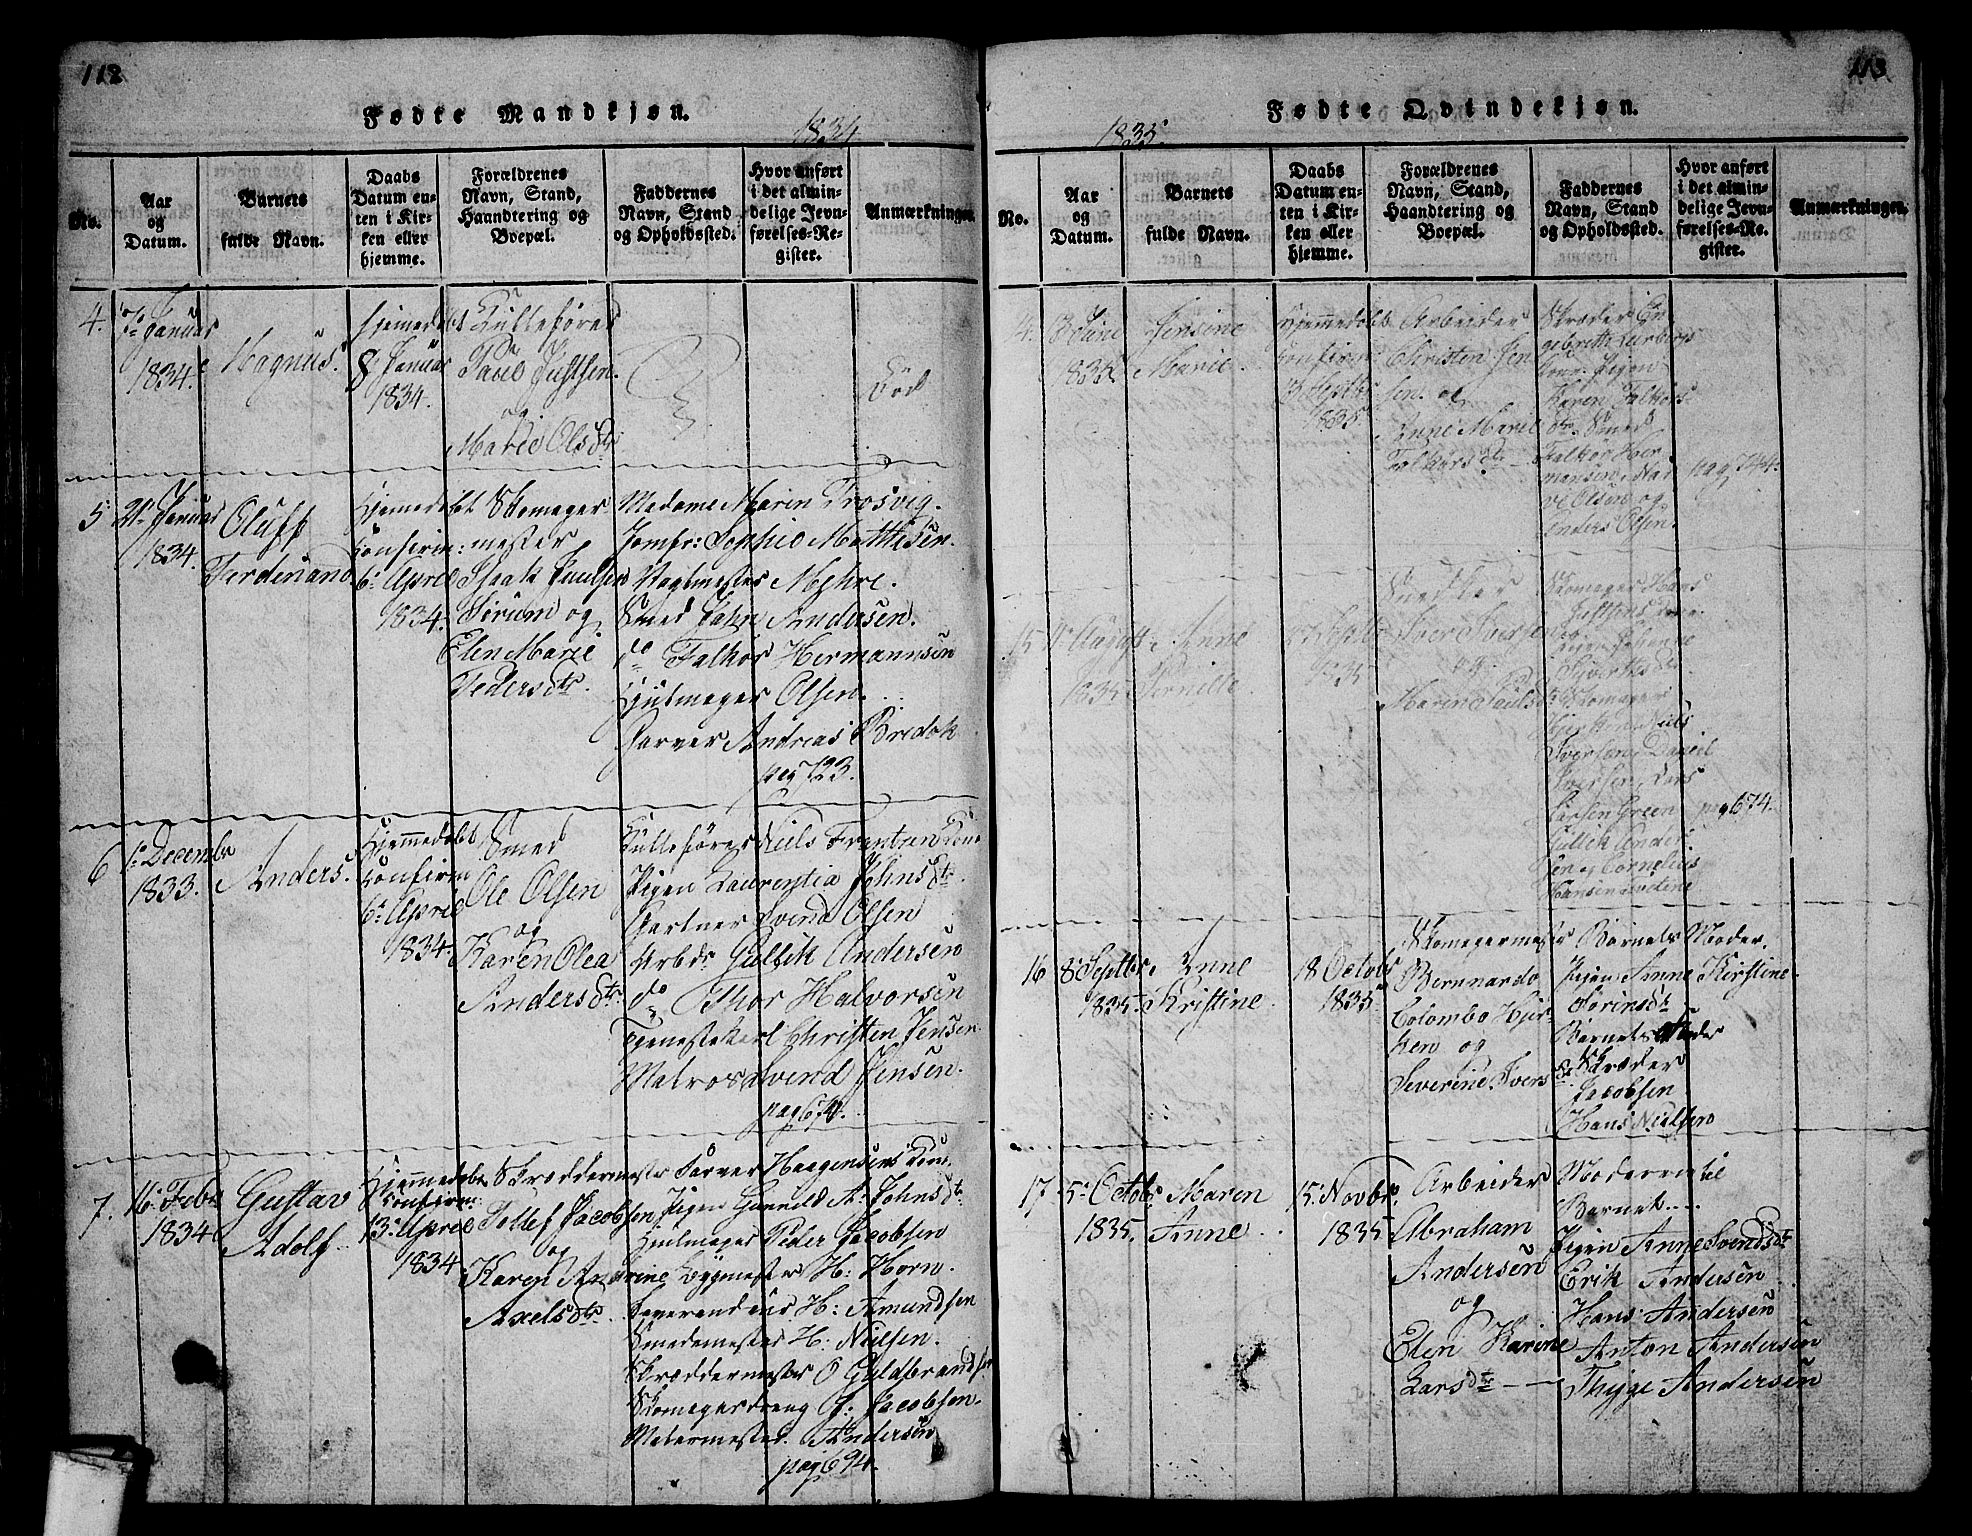 112
Fødte Mandkjøn.
1834
No.
Aar
og
Datum.
Barnets
fulde Navn.
Daabs
Datum en-
ten i Kir-
ken eller
hjemme.
Forældrenes
Navn, Stand,
Haandtering og
Boepæl.
Faddernes
Navn, Stand
og Opholdssted.
Hvor anført
i det almin-
delige Jevn-
førelses-Re-
gister.
Anmærkninger.
4.
7 Januar
1834.
Magnus.
Hjemedøbt
8 Januar
1834.
Paul Justsen
og
Marie Olsdtr
Død
5
21 Januar
1834.
Oluff
Ferdinand.
Hjemedøbt
Confirm:
6 April
1834.
Skomager
mester
Isak Paulsen
Sørum og
Elen Marie
Pedersdtr.
Madame Maren Trosvig.
Jomfr: Sophie Mathisen.
Vagtmester Myhre.
Smed John Andersen.
do Falkor Hermannsen
Hjulmager Olsen.
Garver Andreas Bredok
pag 723.
6
1 Decembr
1833.
Anders.
Hjemmedøbt
Confirm
6 April
1834.
Smed
Ole Olsen
og
Karen Olea
Andersdtr.
Kullefører Niels Frantzen Kone
Pigen Laurentia Johnsdtr.
Gartner Svend Olsen
Arbdr Gullik Andersen
do Thor Halvorsen
Tjenestekarl Christen Jensen
Matros Svend Jensen.
pag 670.
7.
16 Febr
1834
Gustav
Adolf
Hjemmedøbt
Confirm:
13 April
1834.
Skræddermester
Tollef Jacobsen
og
Karen Andrine
Axelsdtr.
Farver Haagensens Kone.
Pigen Gunnild A. Johnsdtr.
Hjulmager Peder Jacobsen
Bygmester H: Horn.
H: Amundsen
Smedemester H. Nielsen.
Skræddermester O Guldbrands
Skomagerdreng J: Jacobsen.
Malermester Andersen
pag 694.
113
Fødte Qvindekjøn.
1835.
No.
Aar
og
Datum.
Barnets
fulde Navn.
Daabs
Datum en-
ten i Kir-
ken eller
hjemme.
Forældrenes
Navn, Stand,
Haandtering og
Boepæl.
Faddernes
Navn, Stand
og Opholdssted.
Hvor anført
i det almin-
delige Jevn-
førelses-Re-
gister.
Anmærkninger.
4.
3 June
1835.
Jensine
Marie.
Hjemmedøbt
Confirm:
3 Septbr
1835.
Arbeider
Christen Jen
sen og
Anne Marie
Falkorsdtr
Skræder En
gebreth
Kone. Pigen
Karen Falkors
dtr. Smed
Falkor Her
mansen
Olsen og
Anders Olsen.
pag 744.
15
4 Augst
1835
Anne
Pernille
Septbr
1835
Snedker
Iver Iversen
og
Maren Paulsdtr
Skomager Hans
Justsens Kone
Pigen Johanne
Sivertsdtr
Skomager
Niels
Iversen, Daniel
Iversen, Lars
Larsen Green
Gullik Ander
sen og Cornelius
Hansen
pag 674.
16
8 Septbr
1835.
Anne
Kristine.
18 Octobr
1835
Skomagermester
Bernnardo
Colombo Hjer
ken og
Severine Ivers
dtr
Barnets Moder.
Pigen Anne Kirstine
Sørensdtr
Barnets Fader
Skræder
Jacobsen
Hans Nielsen
17
5 Octobr
1835.
Maren
Anne
15 Novbr.
1835
Arbeider
Abraham
Andersen
og
Elen Karine
Larsdtr
Moderen til
Barnet
Pigen Anne Svendsdtr
Erik Andersen
Hans Andersen
Anton Andersen
Thyge Andersen